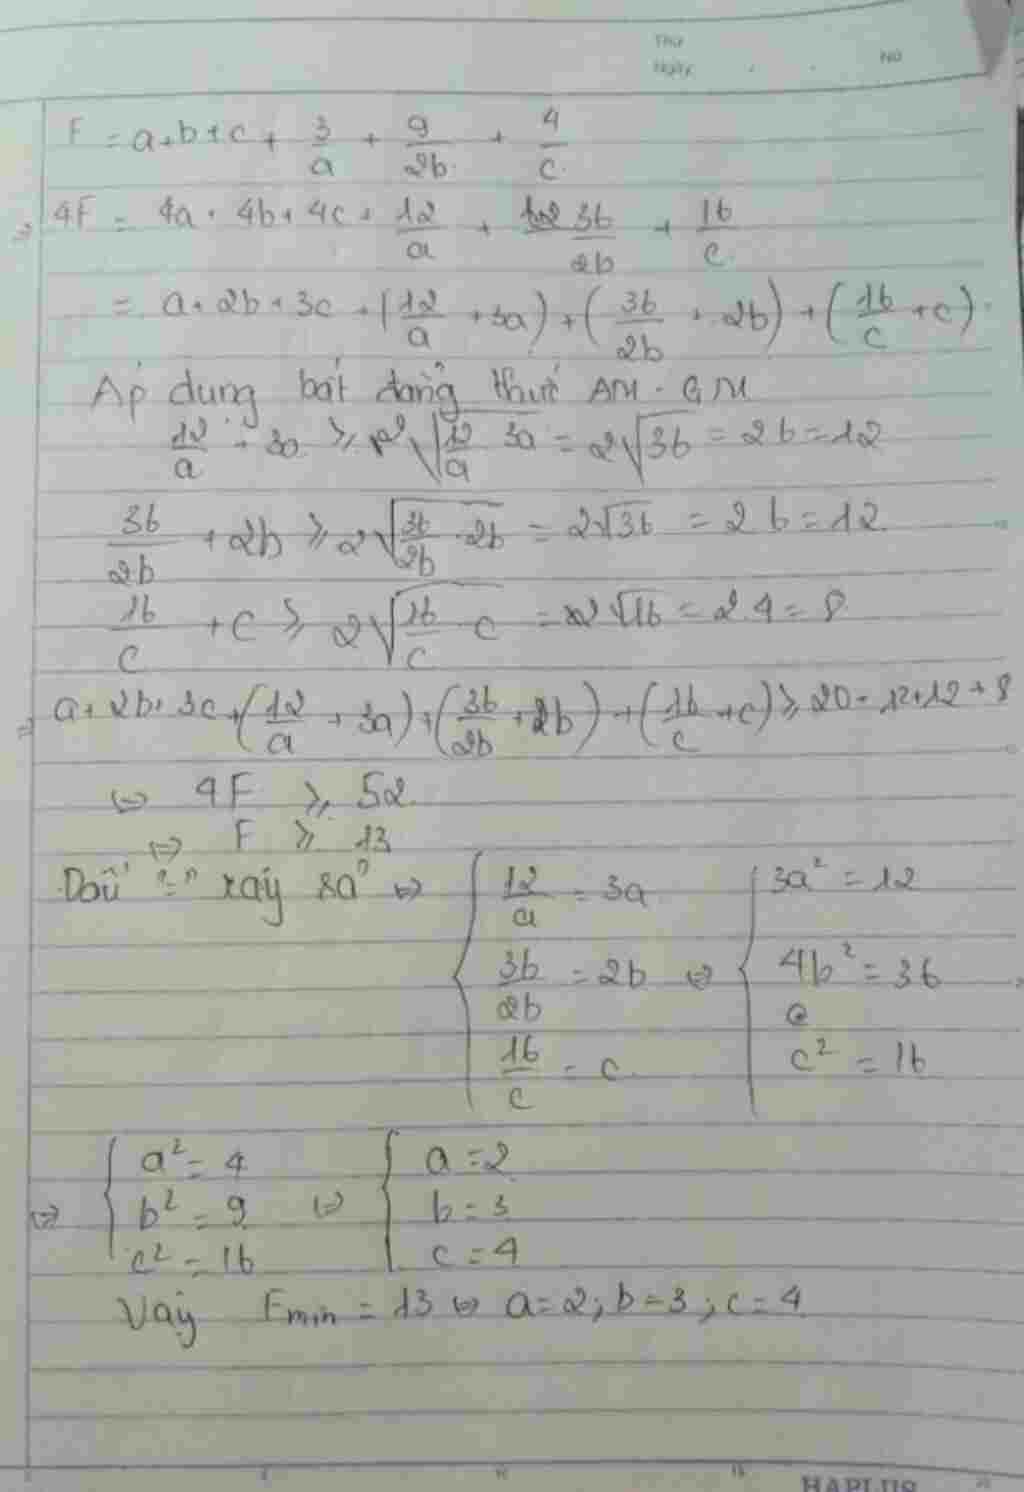 Thứ
Ngày . . No
F = a+b+c + 3/a + 9/2b + 4/c
=> 4F = 4a + 4b + 4c + 12/a + 36/2b + 16/c
= a + 2b + 3c + (12/a + 3a) + (36/2b + 2b) + (16/c + c)
Áp dụng bất đẳng thức AM - GM
12/a + 3a ≥ 2√(12/a · 3a) = 2√36 = 2.6 = 12
36/2b + 2b ≥ 2√(36/2b · 2b) = 2√36 = 2.6 = 12
16/c + c ≥ 2√(16/c · c) = 2√16 = 2.4 = 8
=> a + 2b + 3c + (12/a + 3a) + (36/2b + 2b) + (16/c + c) ≥ 20 + 12 + 12 + 8
<=> 4F ≥ 52
<=> F ≥ 13
Dấu "=" xảy ra <=> { 12/a = 3a { 3a² = 12
36/2b = 2b <=> 4b² = 36
16/c = c c² = 16
<=> { a² = 4 <=> { a = 2
b² = 9 b = 3
c² = 16 c = 4
Vậy Fmin = 13 <=> a = 2; b = 3; c = 4
HAPLUS